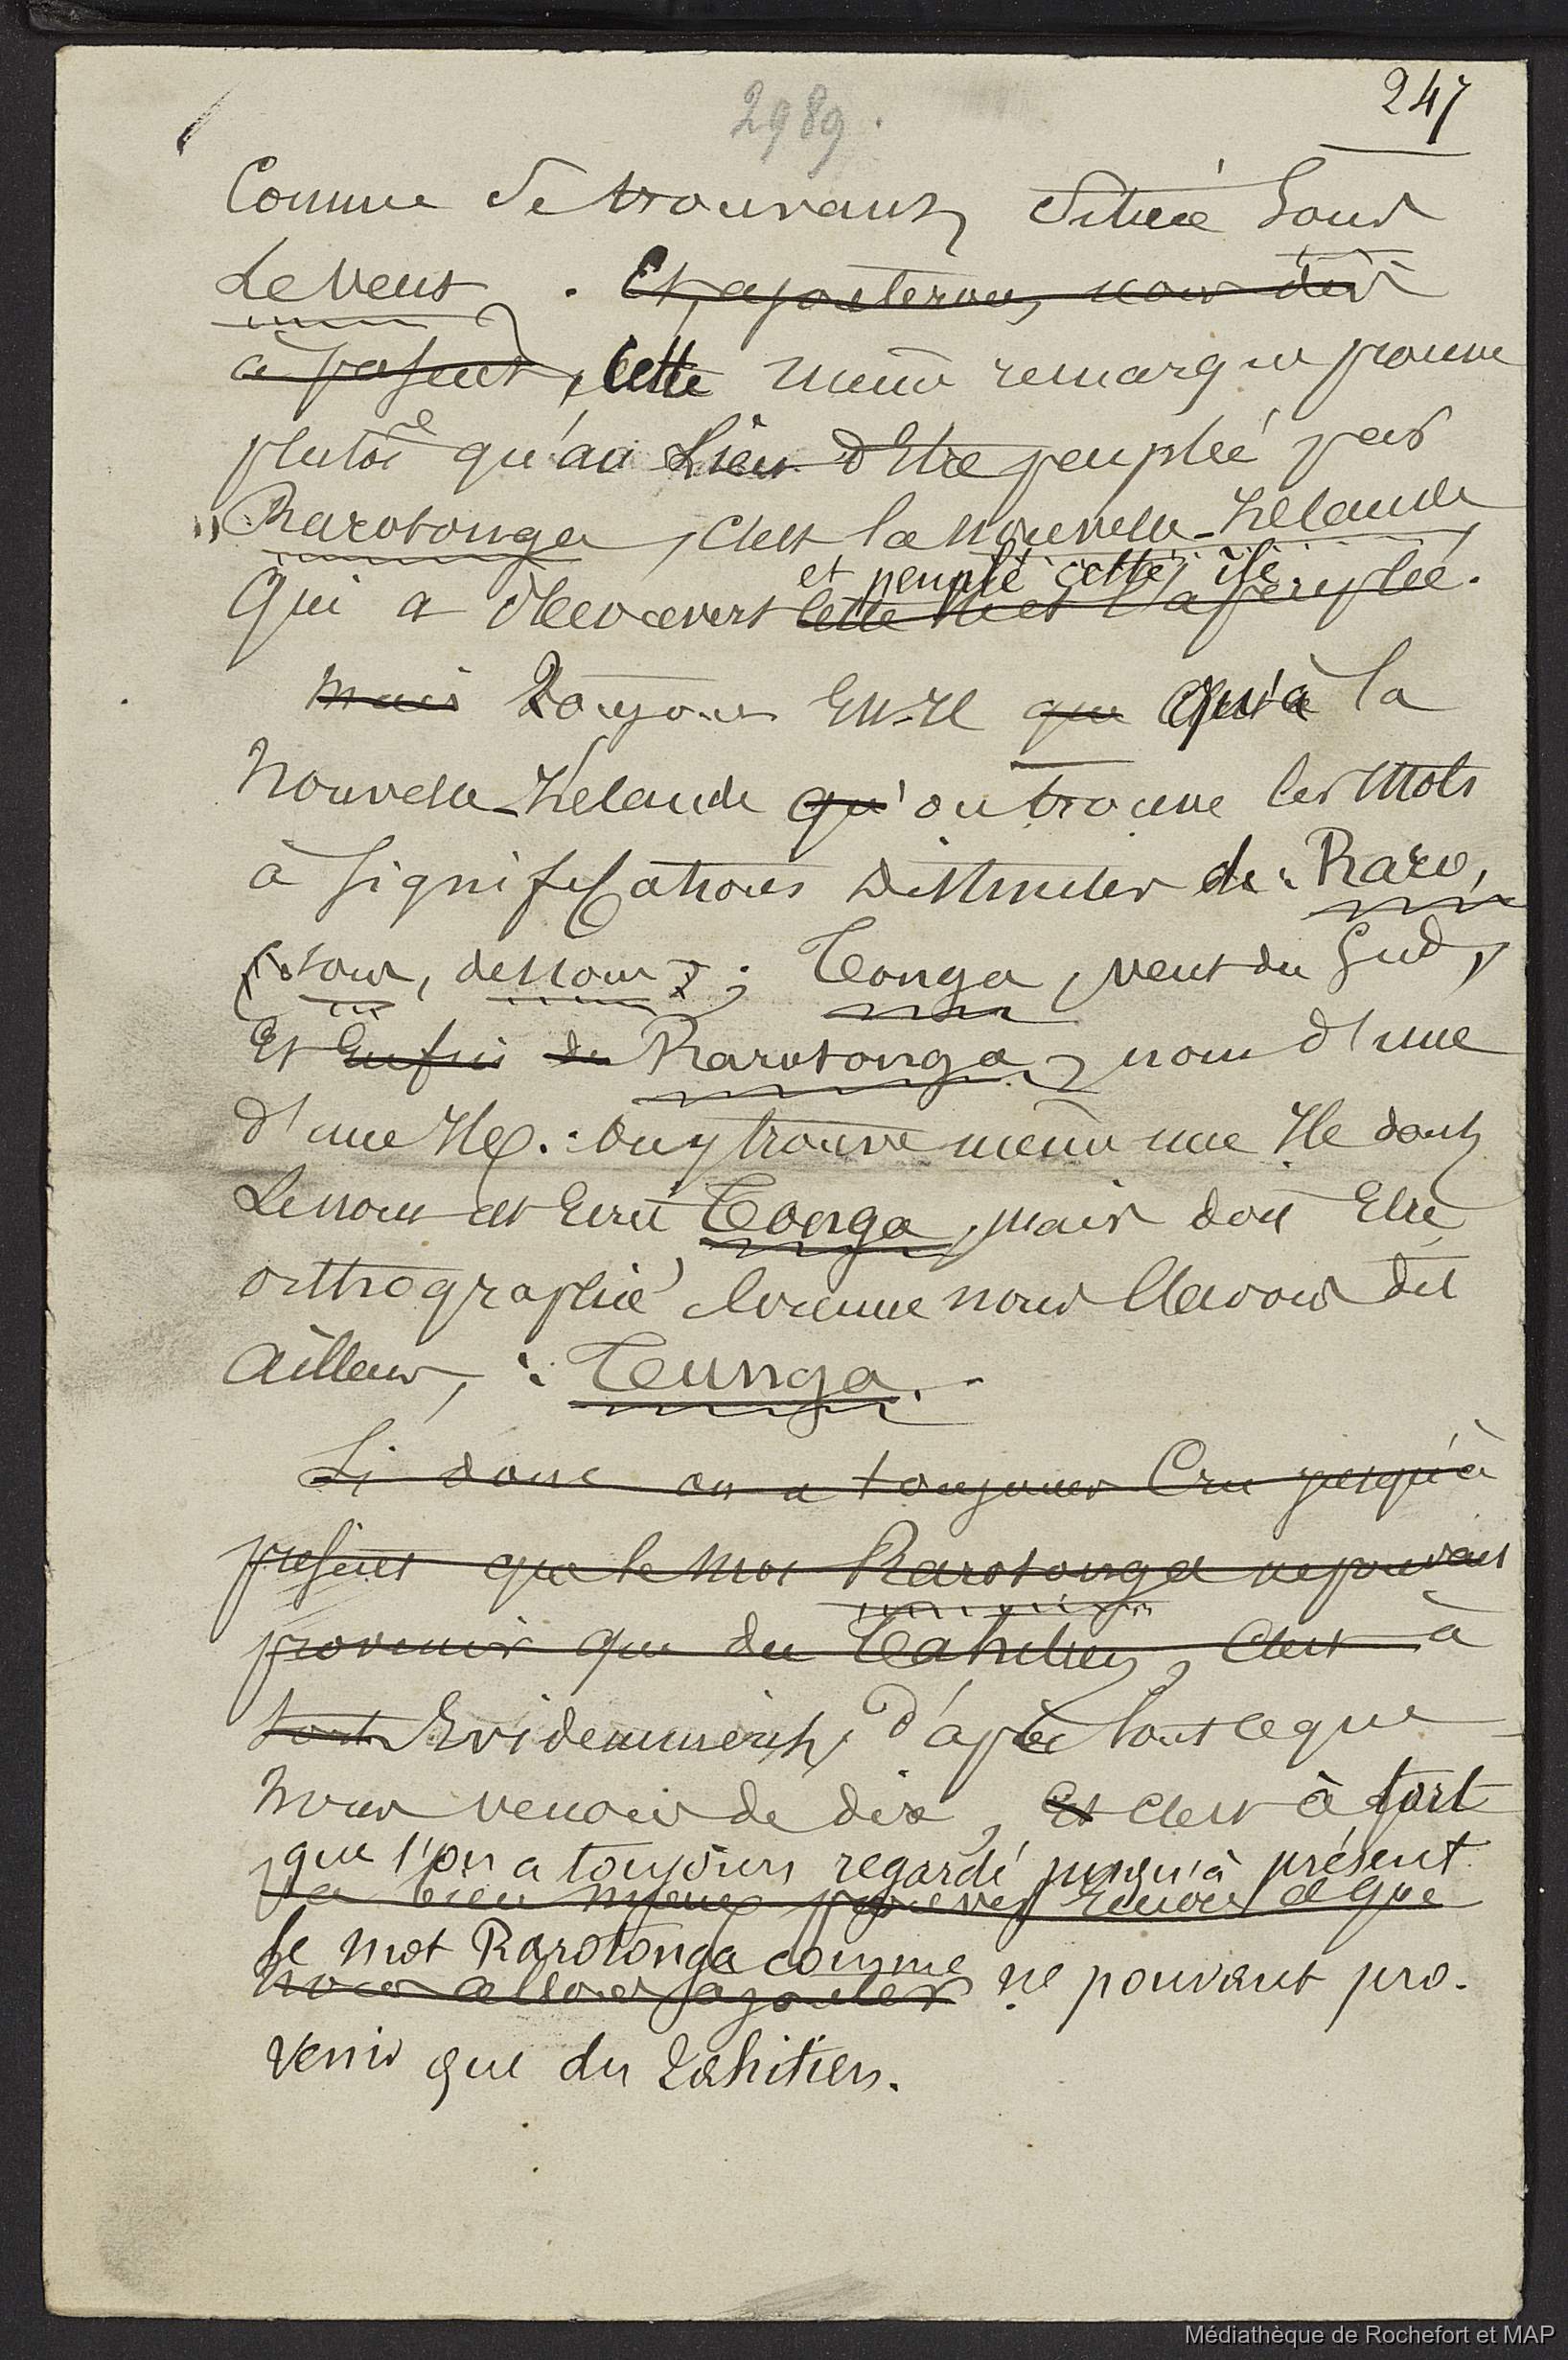 2989.
247
Comme se trouvant située sous
le vent. Et, ajouterons nous dès
à présent, cette même remarque prouve
plutôt qu'au lieu d'être peuplée par
Rarotonga, c'est la Nouvelle-Zélande
et peuplé cette île.
qui a découvert cette île et l'a peuplée.
Mais Toujours est-il que qu'à la
Nouvelle-Zélande qu'on trouve les mots
à significations distinctes de : Raro,
sous, dessous ; Tonga, vent du Sud,
et enfin de Rarotonga, nom d'une
d'une île. On y trouve même une île dont
le nom est écrit Tonga, mais doit être
orthographié, comme nous l'avons dit
ailleurs, : Tunga.
Si donc on a toujours cru jusqu'à
présent que le mot Rarotonga ne pouvait
provenir que du Tahitien, c'est à
tort. Evidemment, d'après tout ce que
nous venons de dire, et c'est à tort
que l'on a toujours regardé jusqu'à présent
prouver encore ce que
le mot Rarotonga comme
nous allons ajouter ne pouvant pro-
venir que du Tahitien.
Médiathèque de Rochefort et MAP